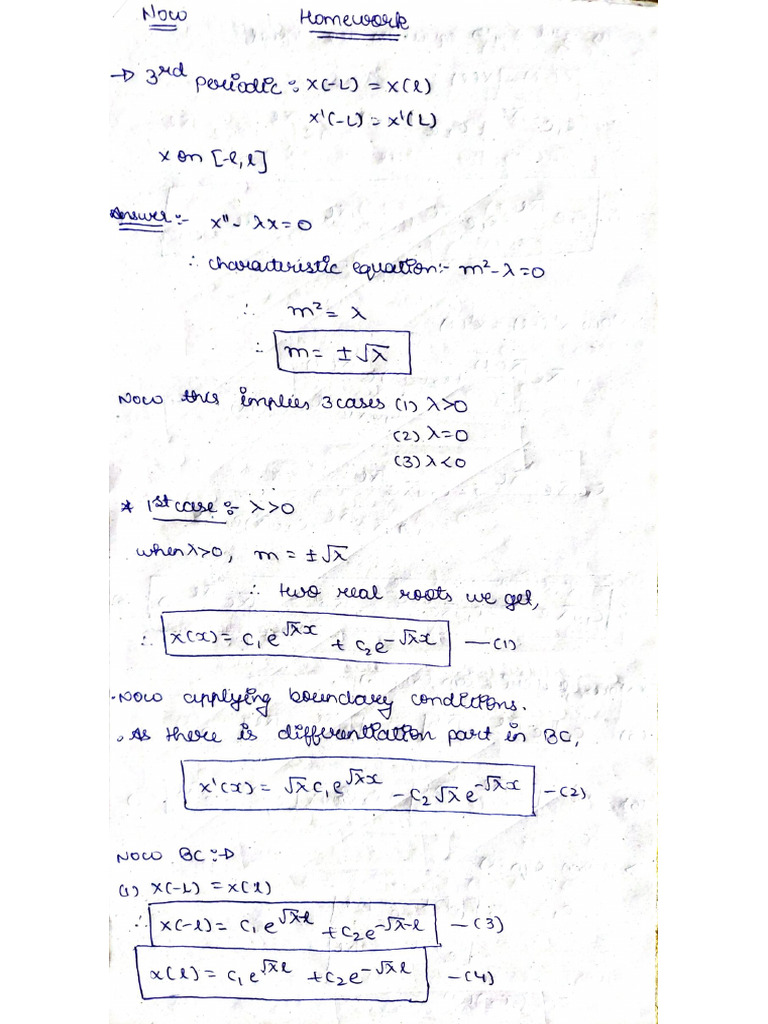 Now Homework
→ 3rd periodic: x(-L) = x(l)
x'(-L) = x'(L)
x on [-l, l]
Answer:- x'' - λx = 0
∴ characteristic equation:- m² - λ = 0
∴ m² = λ
∴ m = ±√λ
Now this implies 3 cases (1) λ>0
(2) λ=0
(3) λ<0
* 1st case:- λ>0
when λ>0, m = ±√λ
∴ two real roots we get,
∴ x(x) = c₁e^√λx + c₂e^-√λx —(1)
. Now applying boundary conditions.
. As there is differentiation part in BC,
x'(x) = √λ c₁e^√λx - c₂√λ e^-√λx —(2)
Now BC:→
(1) x(-L) = x(l)
∴ x(-l) = c₁e^√λ-l + c₂e^-√λ-l —(3)
x(l) = c₁e^√λl + c₂e^-√λl —(4)